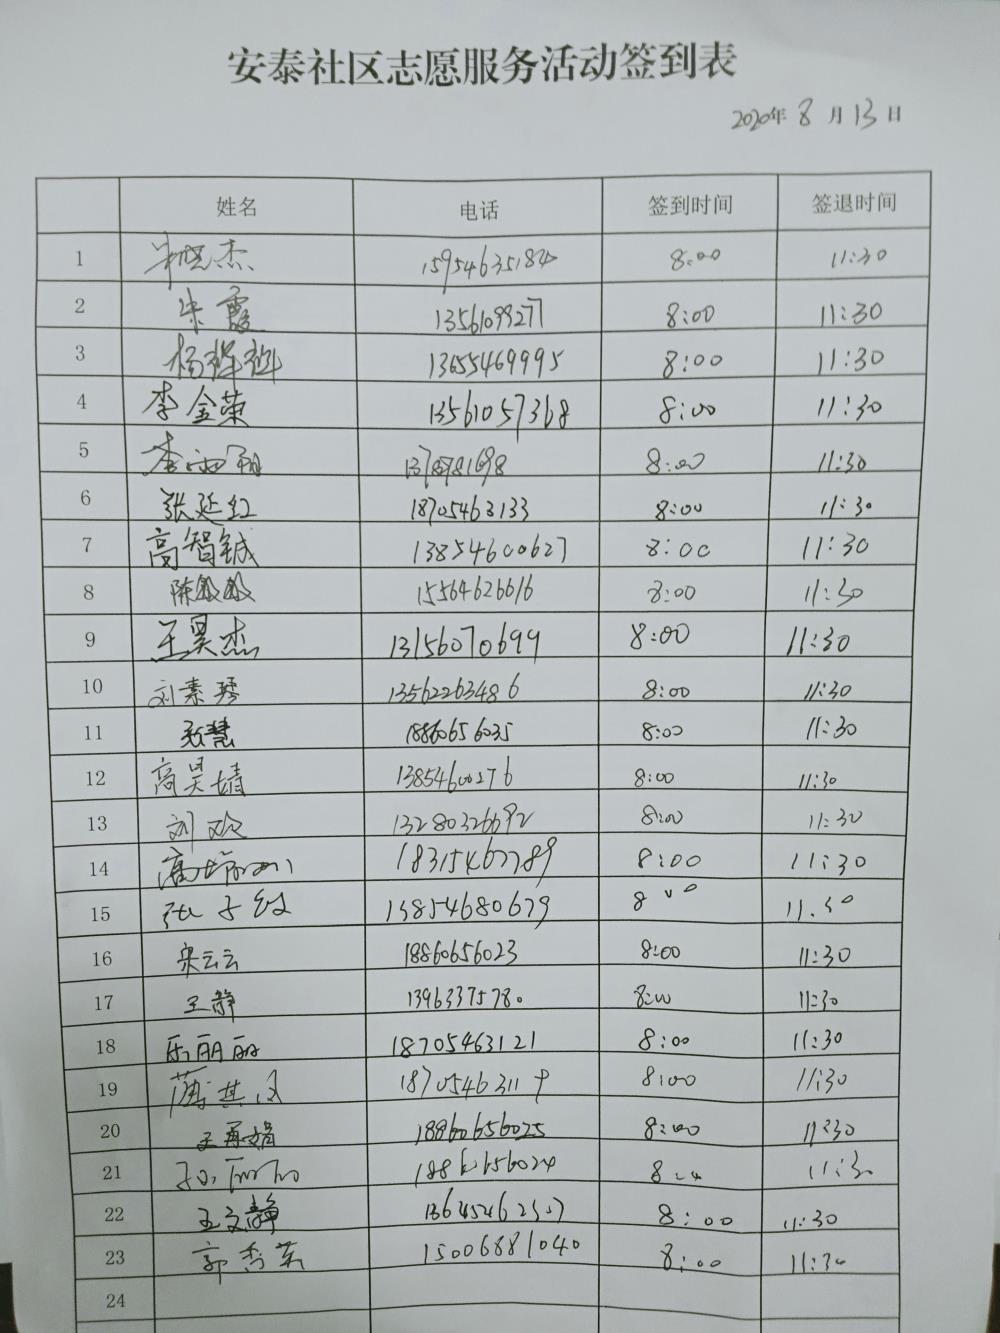 安泰社区志愿服务活动签到表
2020年 8 月 13 日
姓名 电话 签到时间 签退时间
1 杰 15954635184 8:00 11:30
2 朱霞 8:00 11:30
3 杨 13655469995 8:00 11:30
4 李金荣 13561057368 8:00 11:30
5 李雨 8:00 11:30
6 张延红 18705463133 8:00 11:30
7 高智铖 13854600627 8:00 11:30
8 陈敏敏 15564626616 8:00 11:30
9 王昊杰 13156070699 8:00 11:30
10 刘素琴 13562263486 8:00 11:30
11 张慧 18860656035 8:00 11:30
12 高昊婧 13854600276 8:00 11:30
13 刘欢 13280326692 8:00 11:30
14 18315462789 8:00 11:30
15 张子 13854680679 8:00 11:30
16 宋云云 18860656023 8:00 11:30
17 王静 13963375780 8:00 11:30
18 乐丽丽 18705463121 8:00 11:30
19 薄其 8:00 11:30
20 王再娟 18860656025 8:00 11:30
21 孙丽丽 18860656024 8:00 11:30
22 王文静 8:00 11:30
23 郭秀英 15006881040 8:00 11:30
24